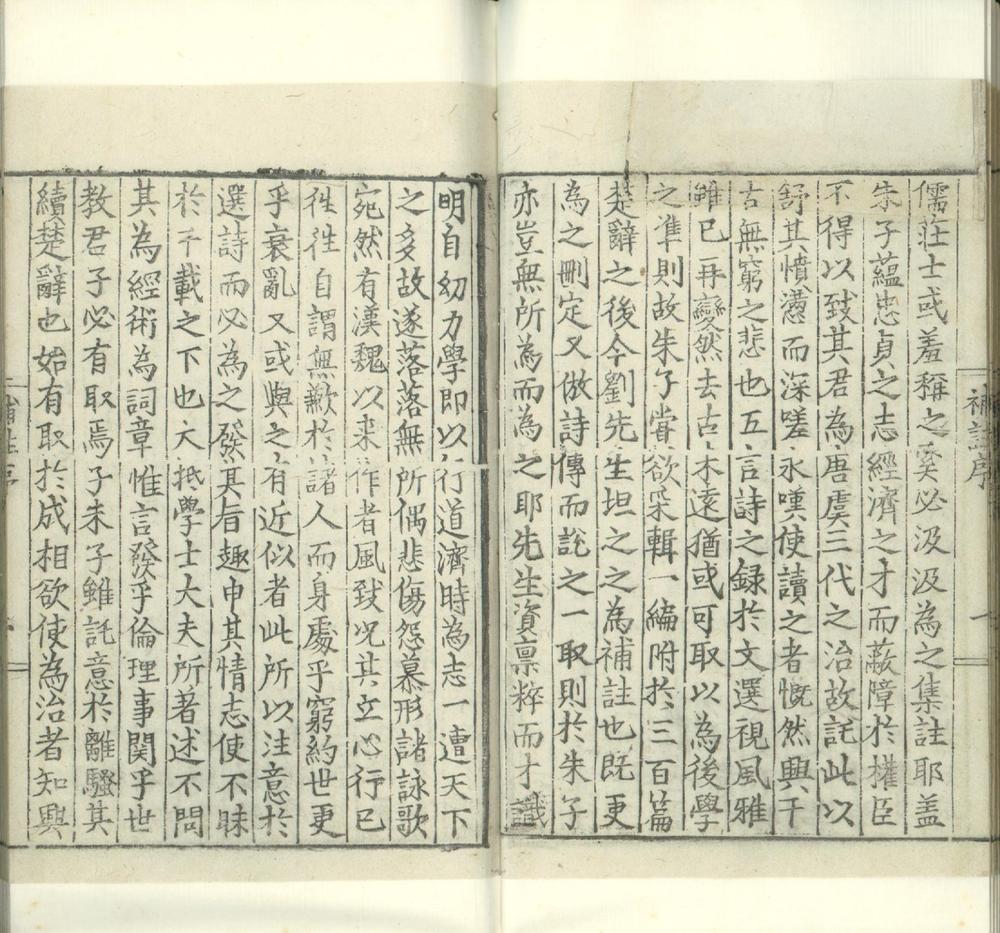 補註序
一
儒莊士或羞稱之奚必汲汲為之集註耶盖
朱子蘊忠貞之志經濟之才而蔽障於權臣
不得以致其君為唐虞三代之治故託此以
舒其憤懣而深嗟永嘆使讀之者慨然興千
古無窮之悲也五言詩之録於文選視風雅
雖已再變然去古未遠猶或可取以為後學
之準則故朱子嘗欲采輯一編附於三百篇
楚辭之後今劉先生坦之之為補註也既更
為之刪定又倣詩傳而說之一取則於朱子
亦豈無所為而為之耶先生資禀粹而才識
明自幼力學即以行道濟時為志一遭天下
之多故遂落落無所偶悲傷怨慕形諸詠歌
宛然有漢魏以来作者風致况其立心行已
徃徃自謂無歉於諸人而身處乎窮約世更
乎衰亂又或與之有近似者此所以注意於
選詩而必為之發其旨趣申其情志使不昧
於千載之下也大抵學士大夫所著述不問
其為經術為詞章惟言發乎倫理事関乎世
教君子必有取焉子朱子雖託意於離騷其
續楚辭也始有取於成相欲使為治者知興
補註序